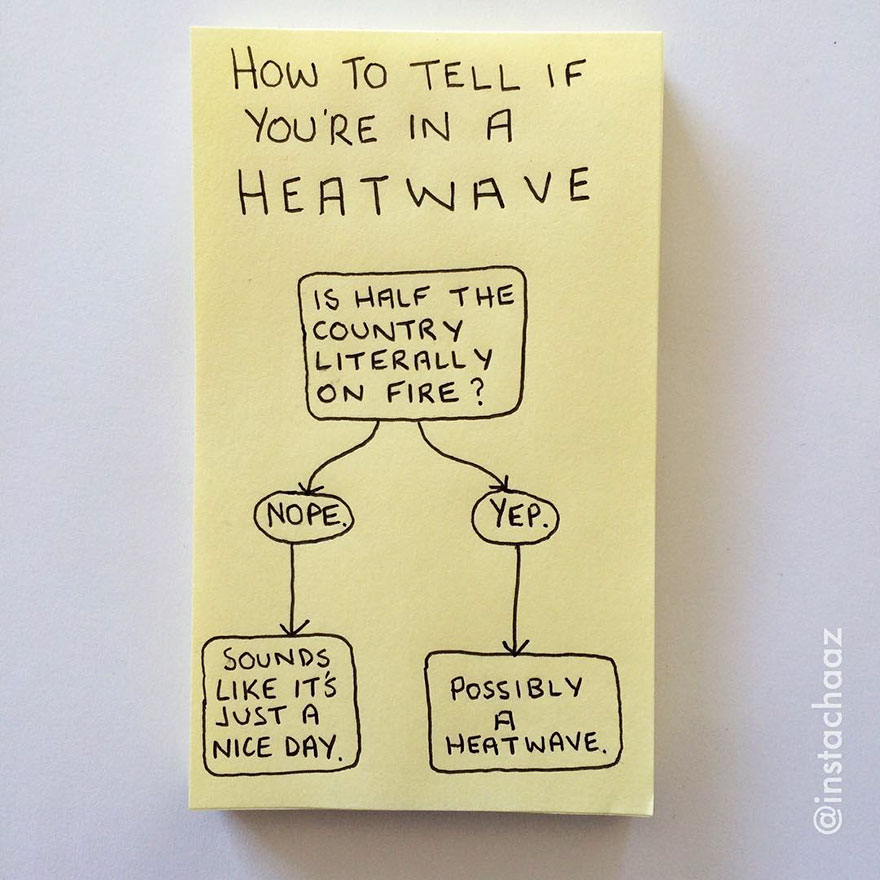 HOW TO TELL IF
YOU'RE IN A
HEATWAVE
IS HALF THE
COUNTRY
LITERALLY
ON FIRE?
NOPE.
YEP.
SOUNDS
LIKE IT'S
JUST A
NICE DAY.
POSSIBLY
A
HEATWAVE.
@instachaaz